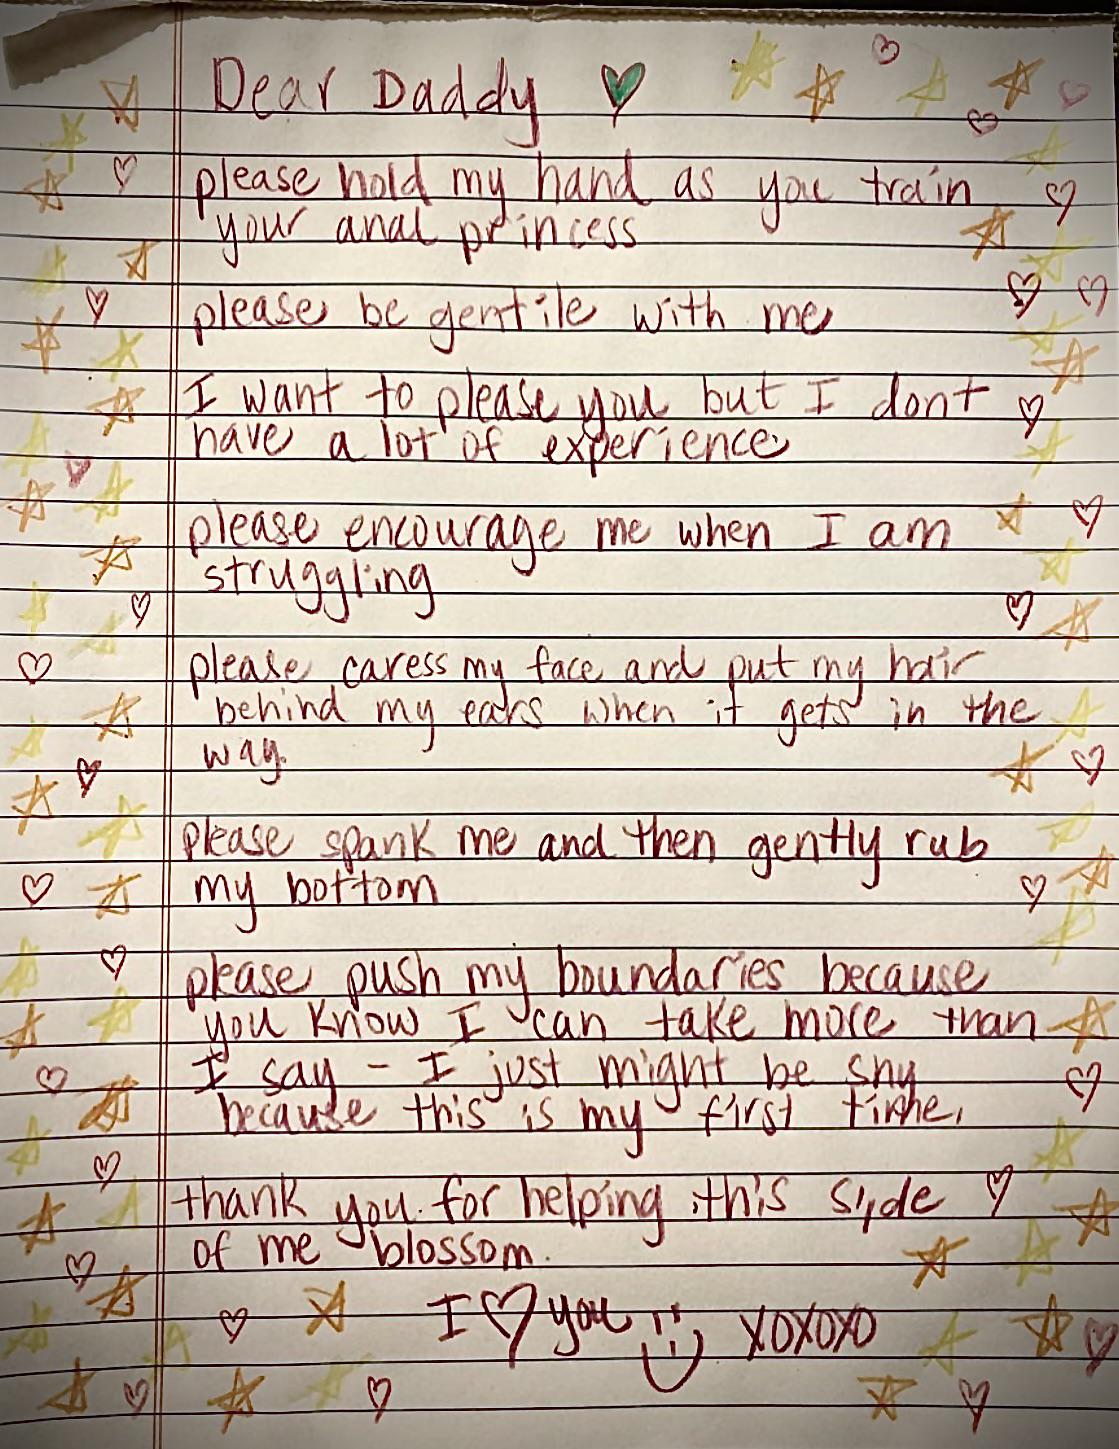 Dear Daddy
please hold my hand as you train
your anal princess
please be gentile with me
I want to please you but I dont
have a lot of experience
please encourage me when I am
struggling
please caress my face and put my hair
behind my ears when it gets in the
way.
please spank me and then gently rub
my bottom
please push my boundaries because
you know I can take more than
I say - I just might be shy
because this is my first time.
thank you for helping this side
of me blossom.
I ♡ you :) XOXOXO